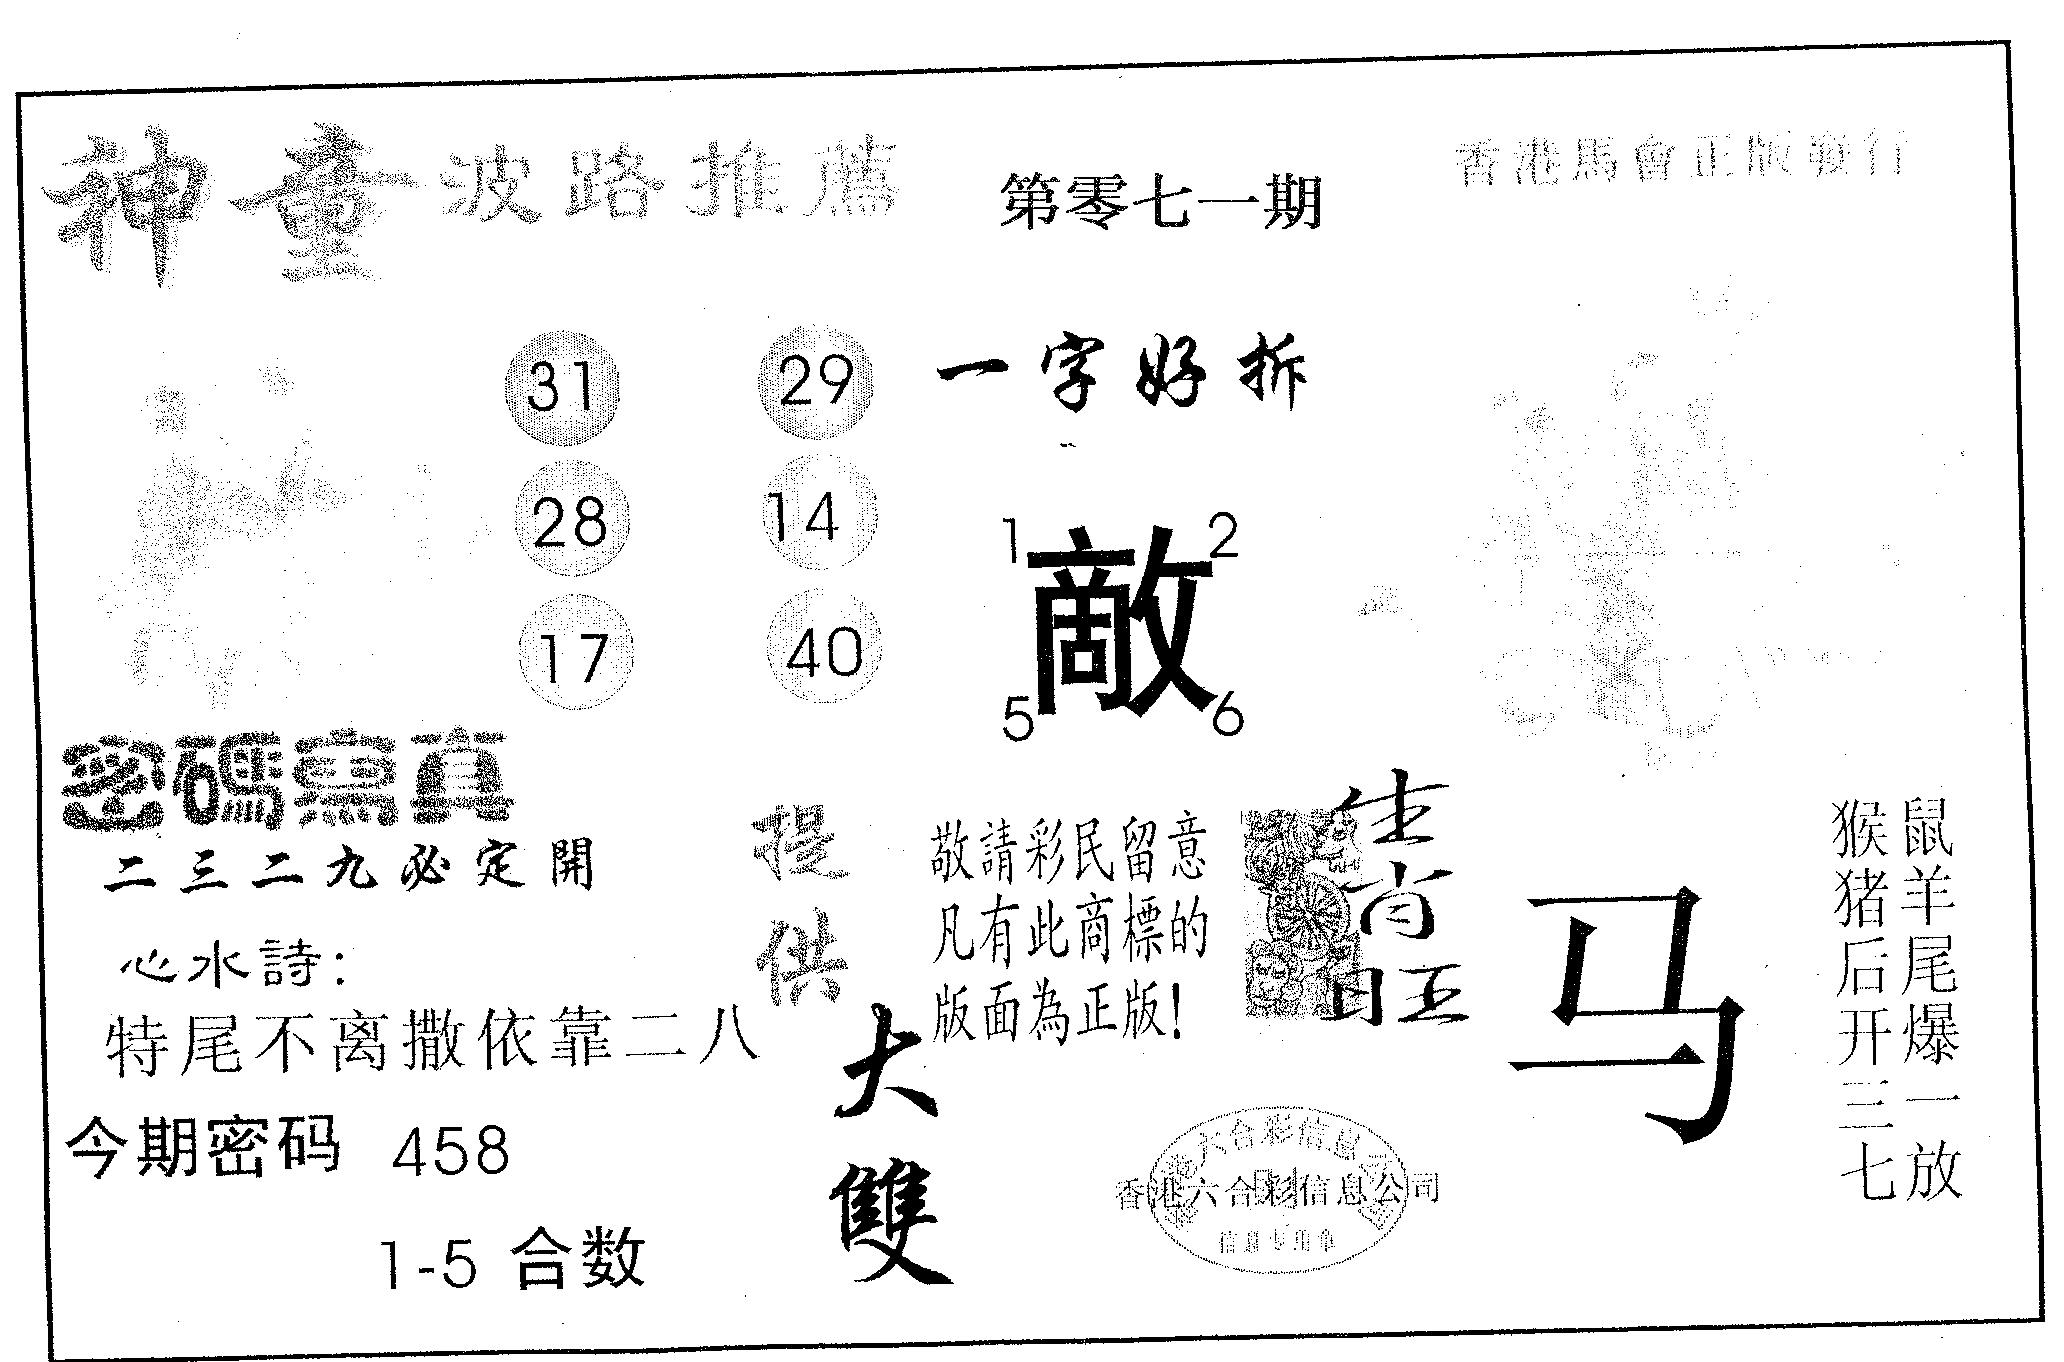 神童波路推薦
第零七一期
香港馬會正版發行
31 29
28 14
17 40
一字好拆
1 2
敵
5 6
密碼寫真
二三二九必定開
心水詩:
特尾不离撒依靠二八
今期密码 458
1-5 合数
提供
大雙
敬請彩民留意
凡有此商標的
版面為正版!
生肖旺
马
鼠羊尾爆一放
猴猪后开三七
香港六合彩信息公司
香港六合彩信息公司